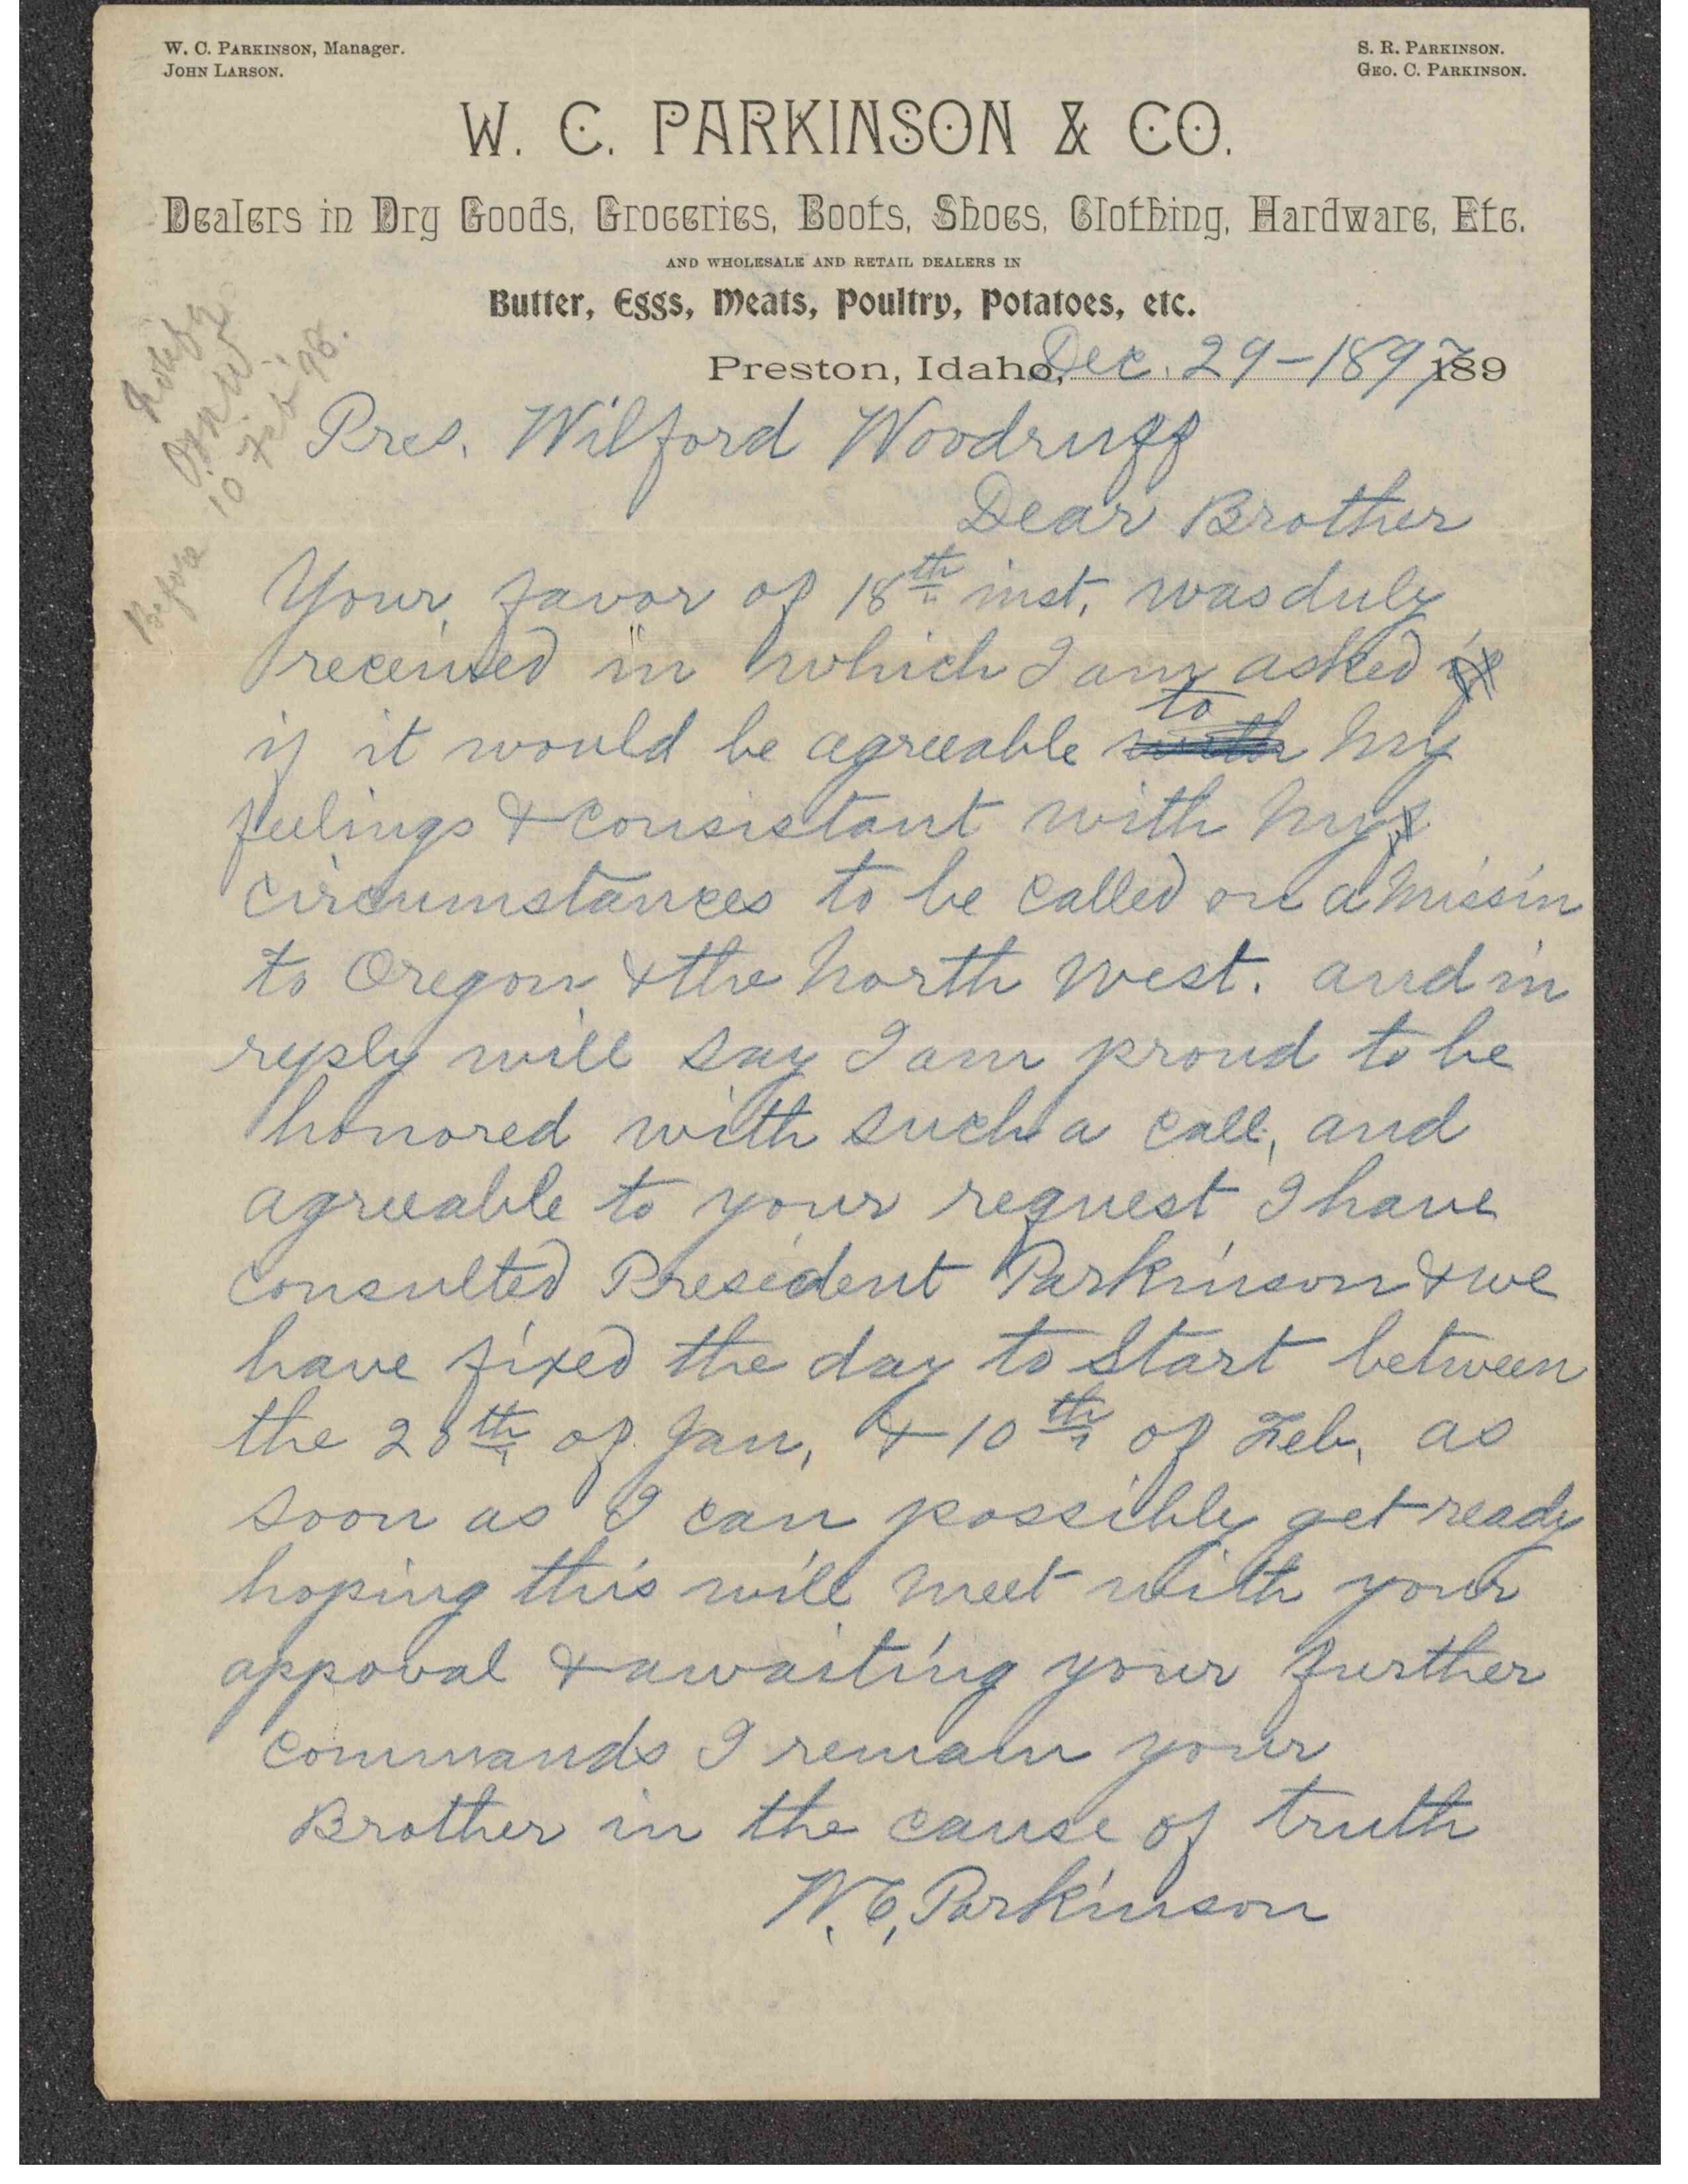 W. C. PARKINSON, Manager.
JOHN LARSON.
S. R. PARKINSON.
GEO. C. PARKINSON.
W. C. PARKINSON & CO.
Dealers in Dry Goods, Groceries, Boots, Shoes, Clothing, Hardware, Etc.
AND WHOLESALE AND RETAIL DEALERS IN
Butter, Eggs, Meats, Poultry, Potatoes, etc.
Preston, Idaho, Dec. 29-1897 189
Before 10 Feb. 98.
Pres. Wilford Woodruff
Dear Brother
Your favor of 18th inst. was duly
received in which I am asked
if it would be agreeable to my
feelings & consistant with my
circumstances to be called on a missin
to Oregon & the North West. and in
reply will say I am proud to be
honored with such a call, and
agreeable to your request I have
consulted President Parkinson & we
have fixed the day to start between
the 20th of Jan, & 10th of Feb, as
soon as I can possibly get ready
hoping this will meet with your
appoval & awaiting your further
commands I remain your
Brother in the cause of truth
W. C. Parkinson